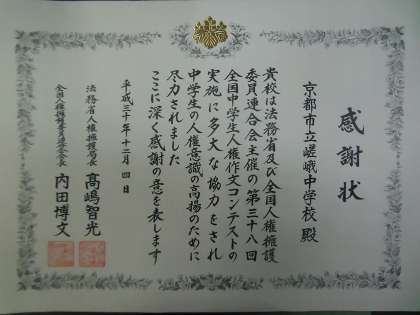 感謝状
京都市立嵯峨中学校 殿
貴校は法務省及び全国人権擁護
委員連合会主催の第三十八回
全国中学生人権作文コンテストの
実施に多大な協力をされ
中学生の人権意識の高揚のために
尽力されました
ここに深く感謝の意を表します
平成三十年十二月四日
法務省人権擁護局長 髙嶋智光
全国人権擁護委員連合会長 内田博文